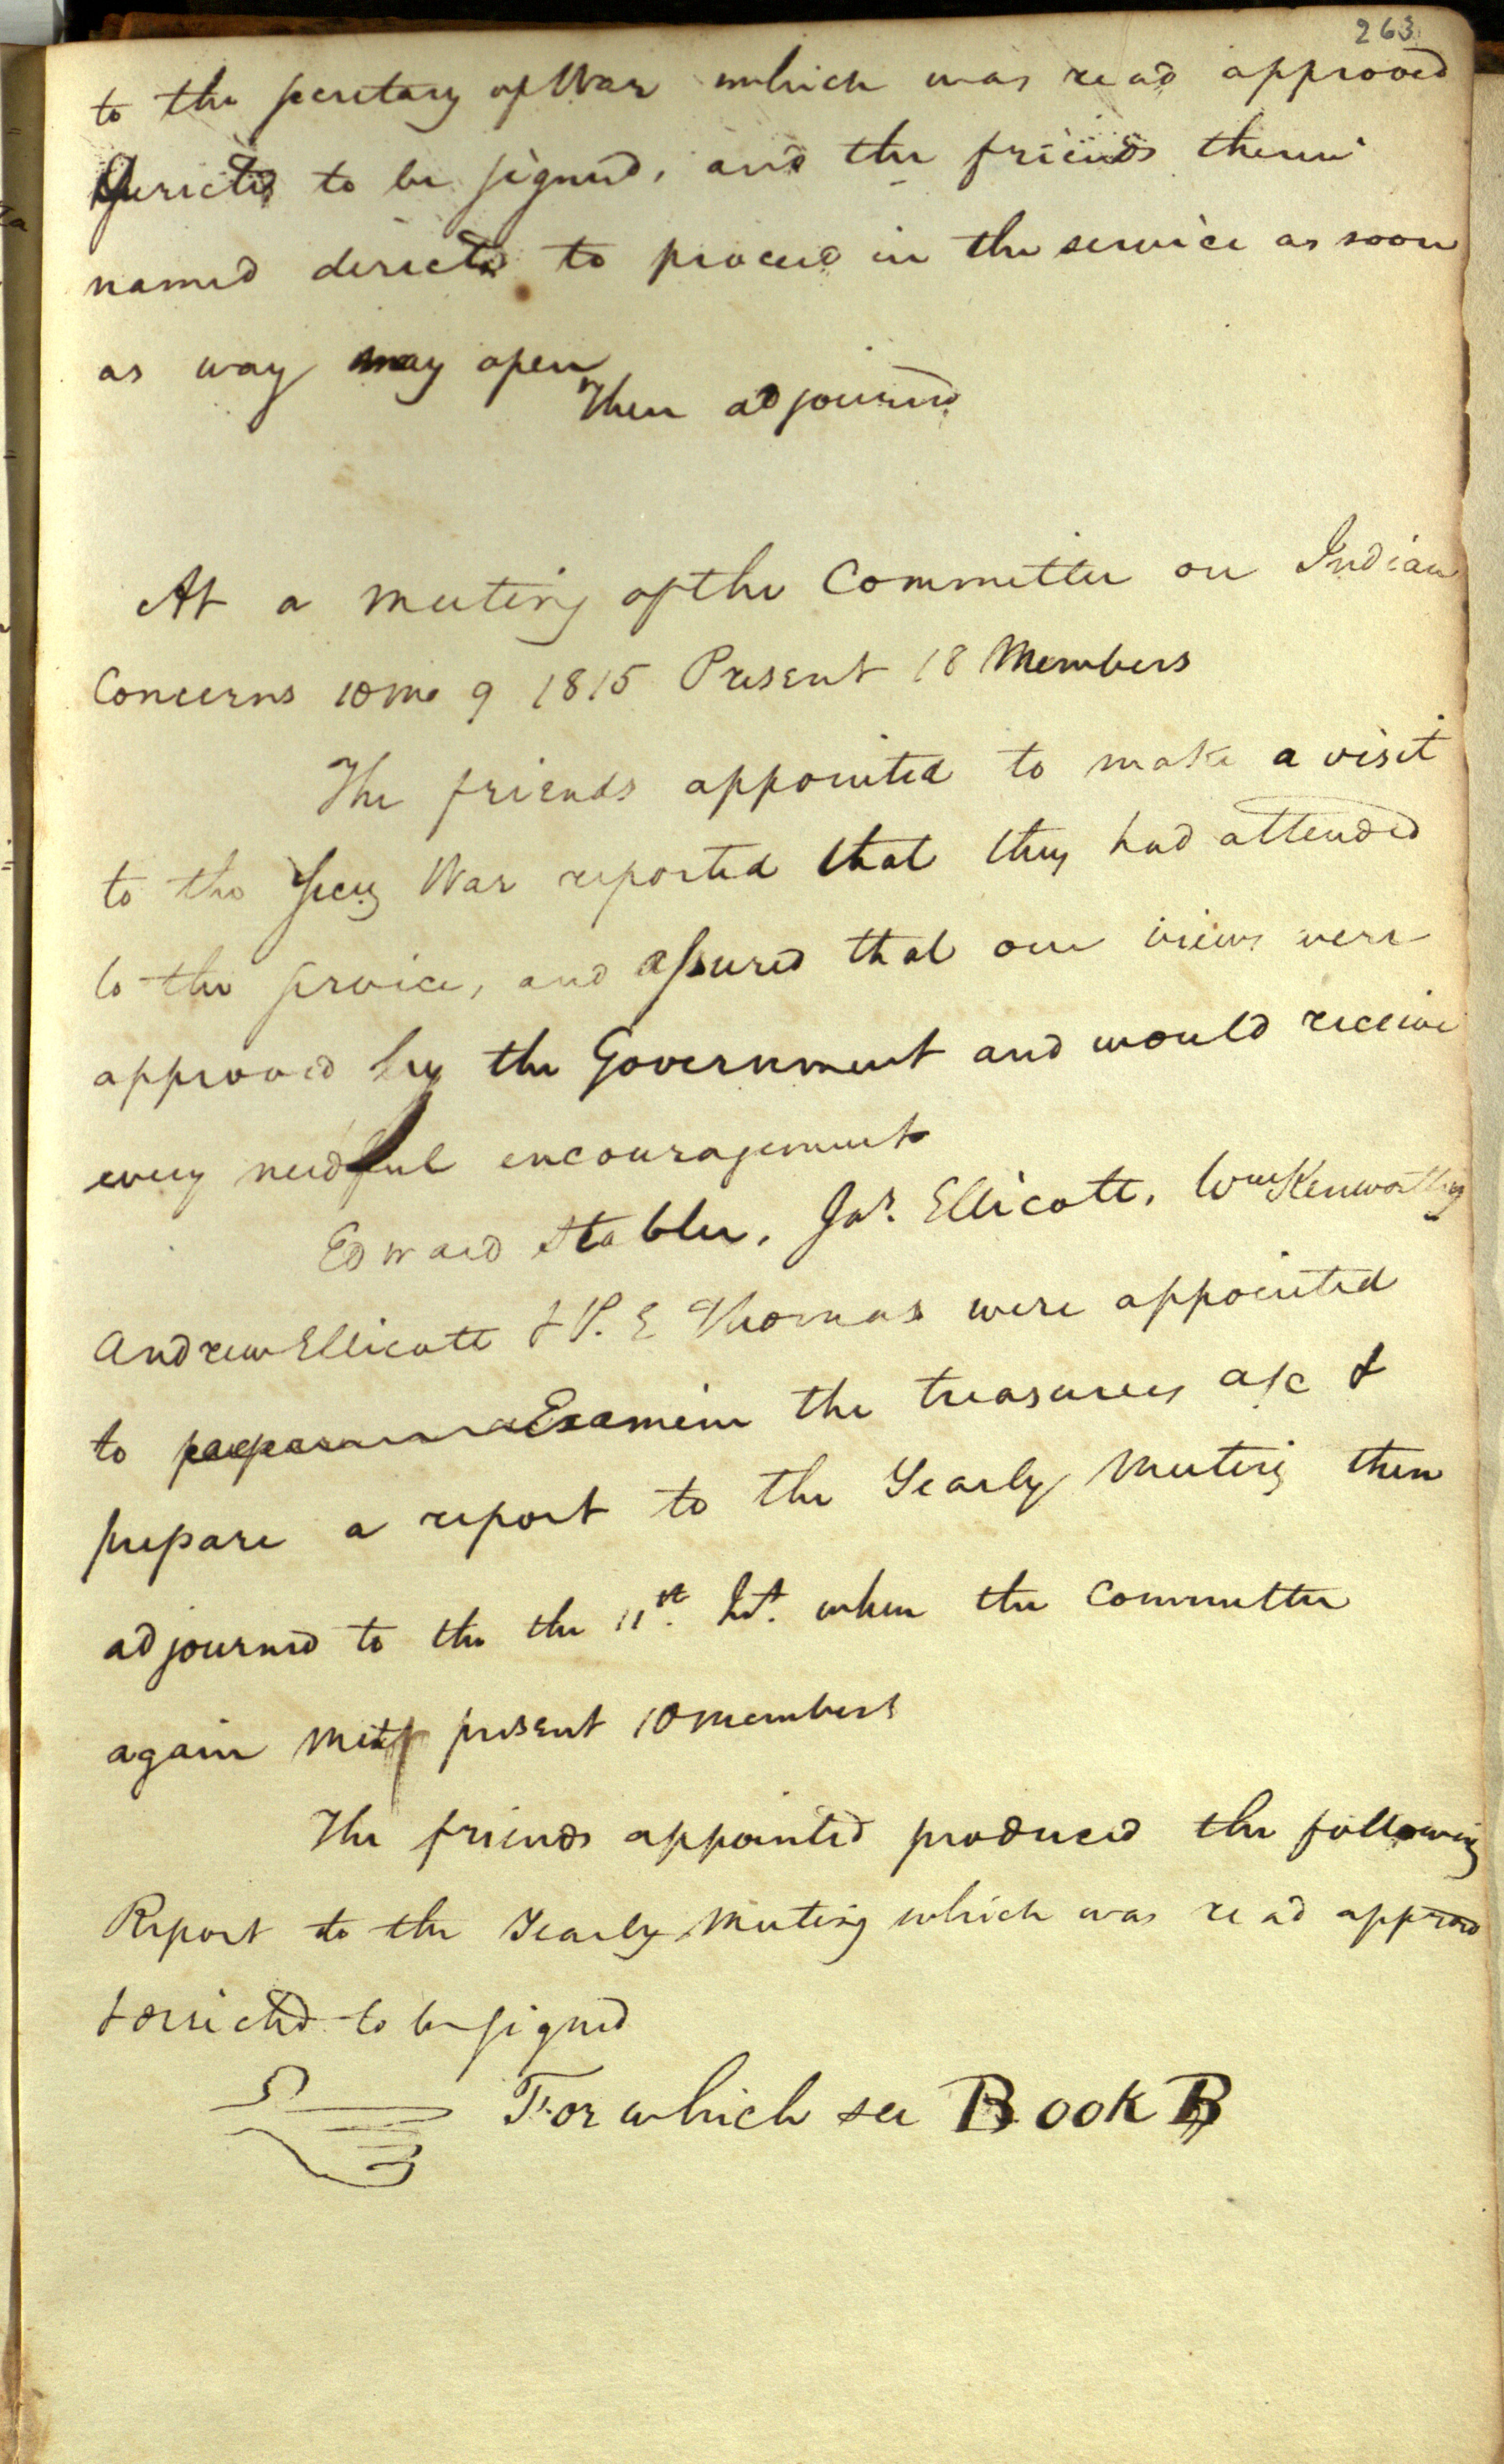 263
to the secretary of War which was read approved
directed to be signed, and the friends therein
named directed to proceed in the service as soon
as way may open
Then adjourned
At a meeting of the Committee on Indian
Concerns 10 mo 9 1815 Present 18 Members
The friends appointed to make a visit
to the Secy War reported that they had attended
to the service, and assured that our views were
approved by the Government and would receive
every needful encouragement
Edward Stabler, Jas. Ellicott, Wm Kenworthy
Andrew Ellicott & P. E Thomas were appointed
to Examine the treasurers a/c &
prepare a report to the Yearly Meeting then
adjourned to the the 11th. Ist. when the Committee
again met present 10 members
The friends appointed produced the following
Report to the Yearly Meeting which was read approved
& directed to be signed
For which see Book B